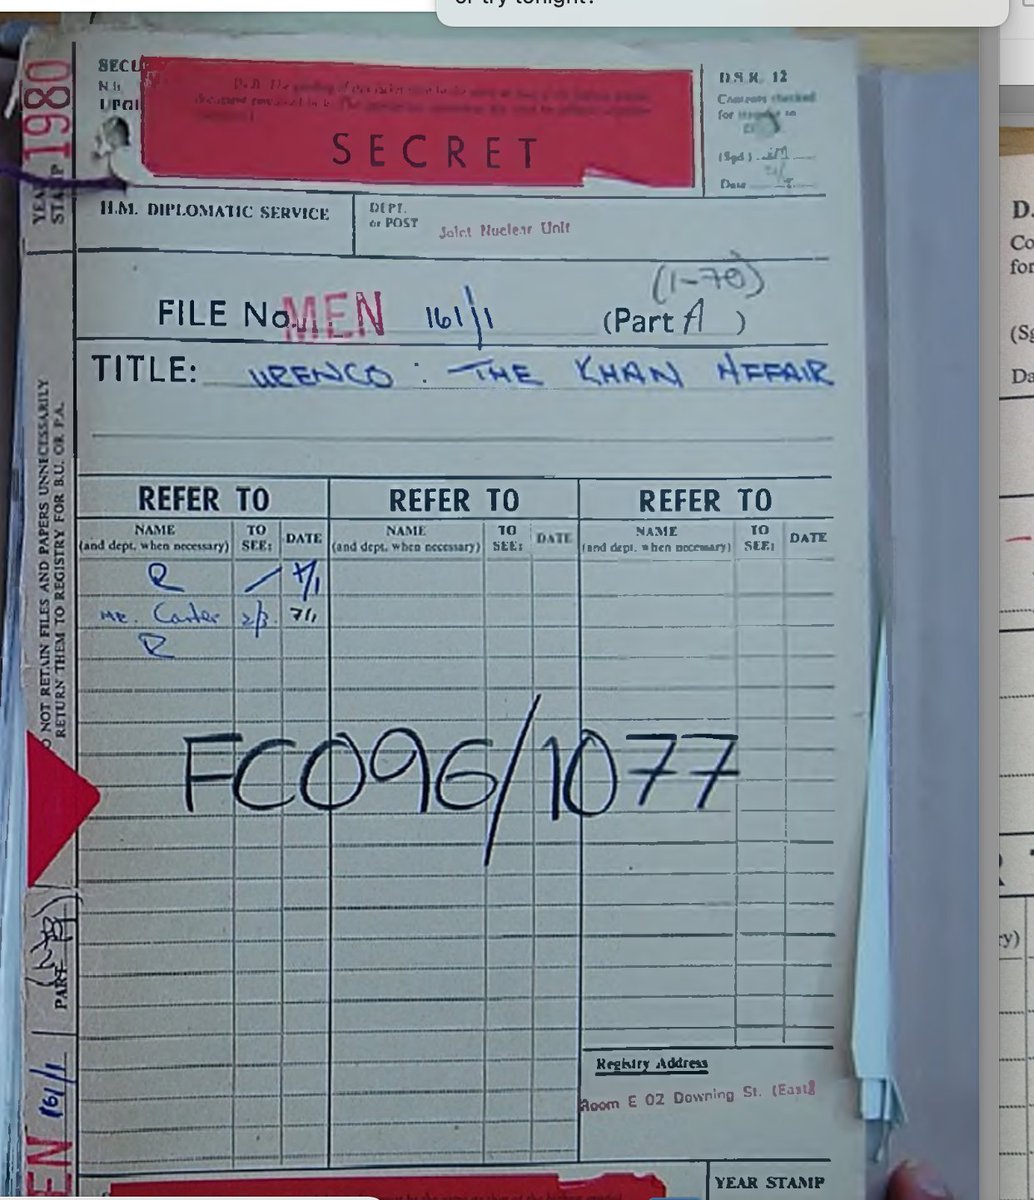 or try tonight?
YEAR STAMP 1980
SECU
N.B.
UPGR
SECRET
D.S.R. 12
Contents checked
for
(Sgd)
Date
H.M. DIPLOMATIC SERVICE
DEPT.
or POST
Joint Nuclear Unit
(1-70)
FILE No. MEN 161/1 (Part A )
TITLE: URENCO : THE KHAN AFFAIR
NOT RETAIN FILES AND PAPERS UNNECESSARILY
RETURN THEM TO REGISTRY FOR B.U. OR P.A.
REFER TO REFER TO REFER TO
NAME (and dept. when necessary) TO SEE: DATE NAME (and dept. when necessary) TO SEE: DATE NAME (and dept. when necessary) TO SEE: DATE
R
Mr. Carter 2/3 7/1
R
FCO96/1077
PART
EN 161/1
Registry Address
Room E 02 Downing St. (East)
YEAR STAMP
D.
Co
for
(Sg
Da
ry)